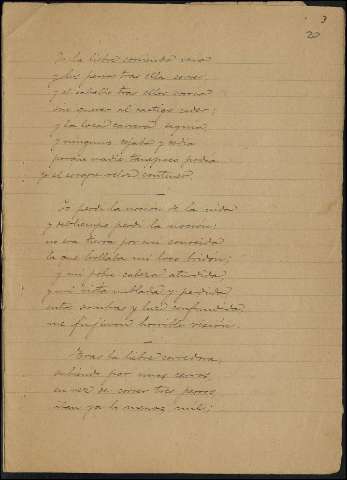 3
20
Y la liebre corriendo
y los perros tras ella
y el caballo tras ellos
sin querer al castigo ceder;
y la loca carrera seguia,
y ninguno cejaba y cedia
porque nadie tampoco podia
el escape veloz contener.
Yo perdí la noción de la vida
y del tiempo perdí la noción;
no era tierra por mi conocida
la que hollaba mi loco bridón;
y mi pobre cabeza aturdida
y mi vista nublada y perdida
entre sombra y luz confundida
me fingieron horrible visión.
Tras la liebre corredora,
subiendo por unos cerros,
en vez de correr tres perros
iban ya lo menos mil;